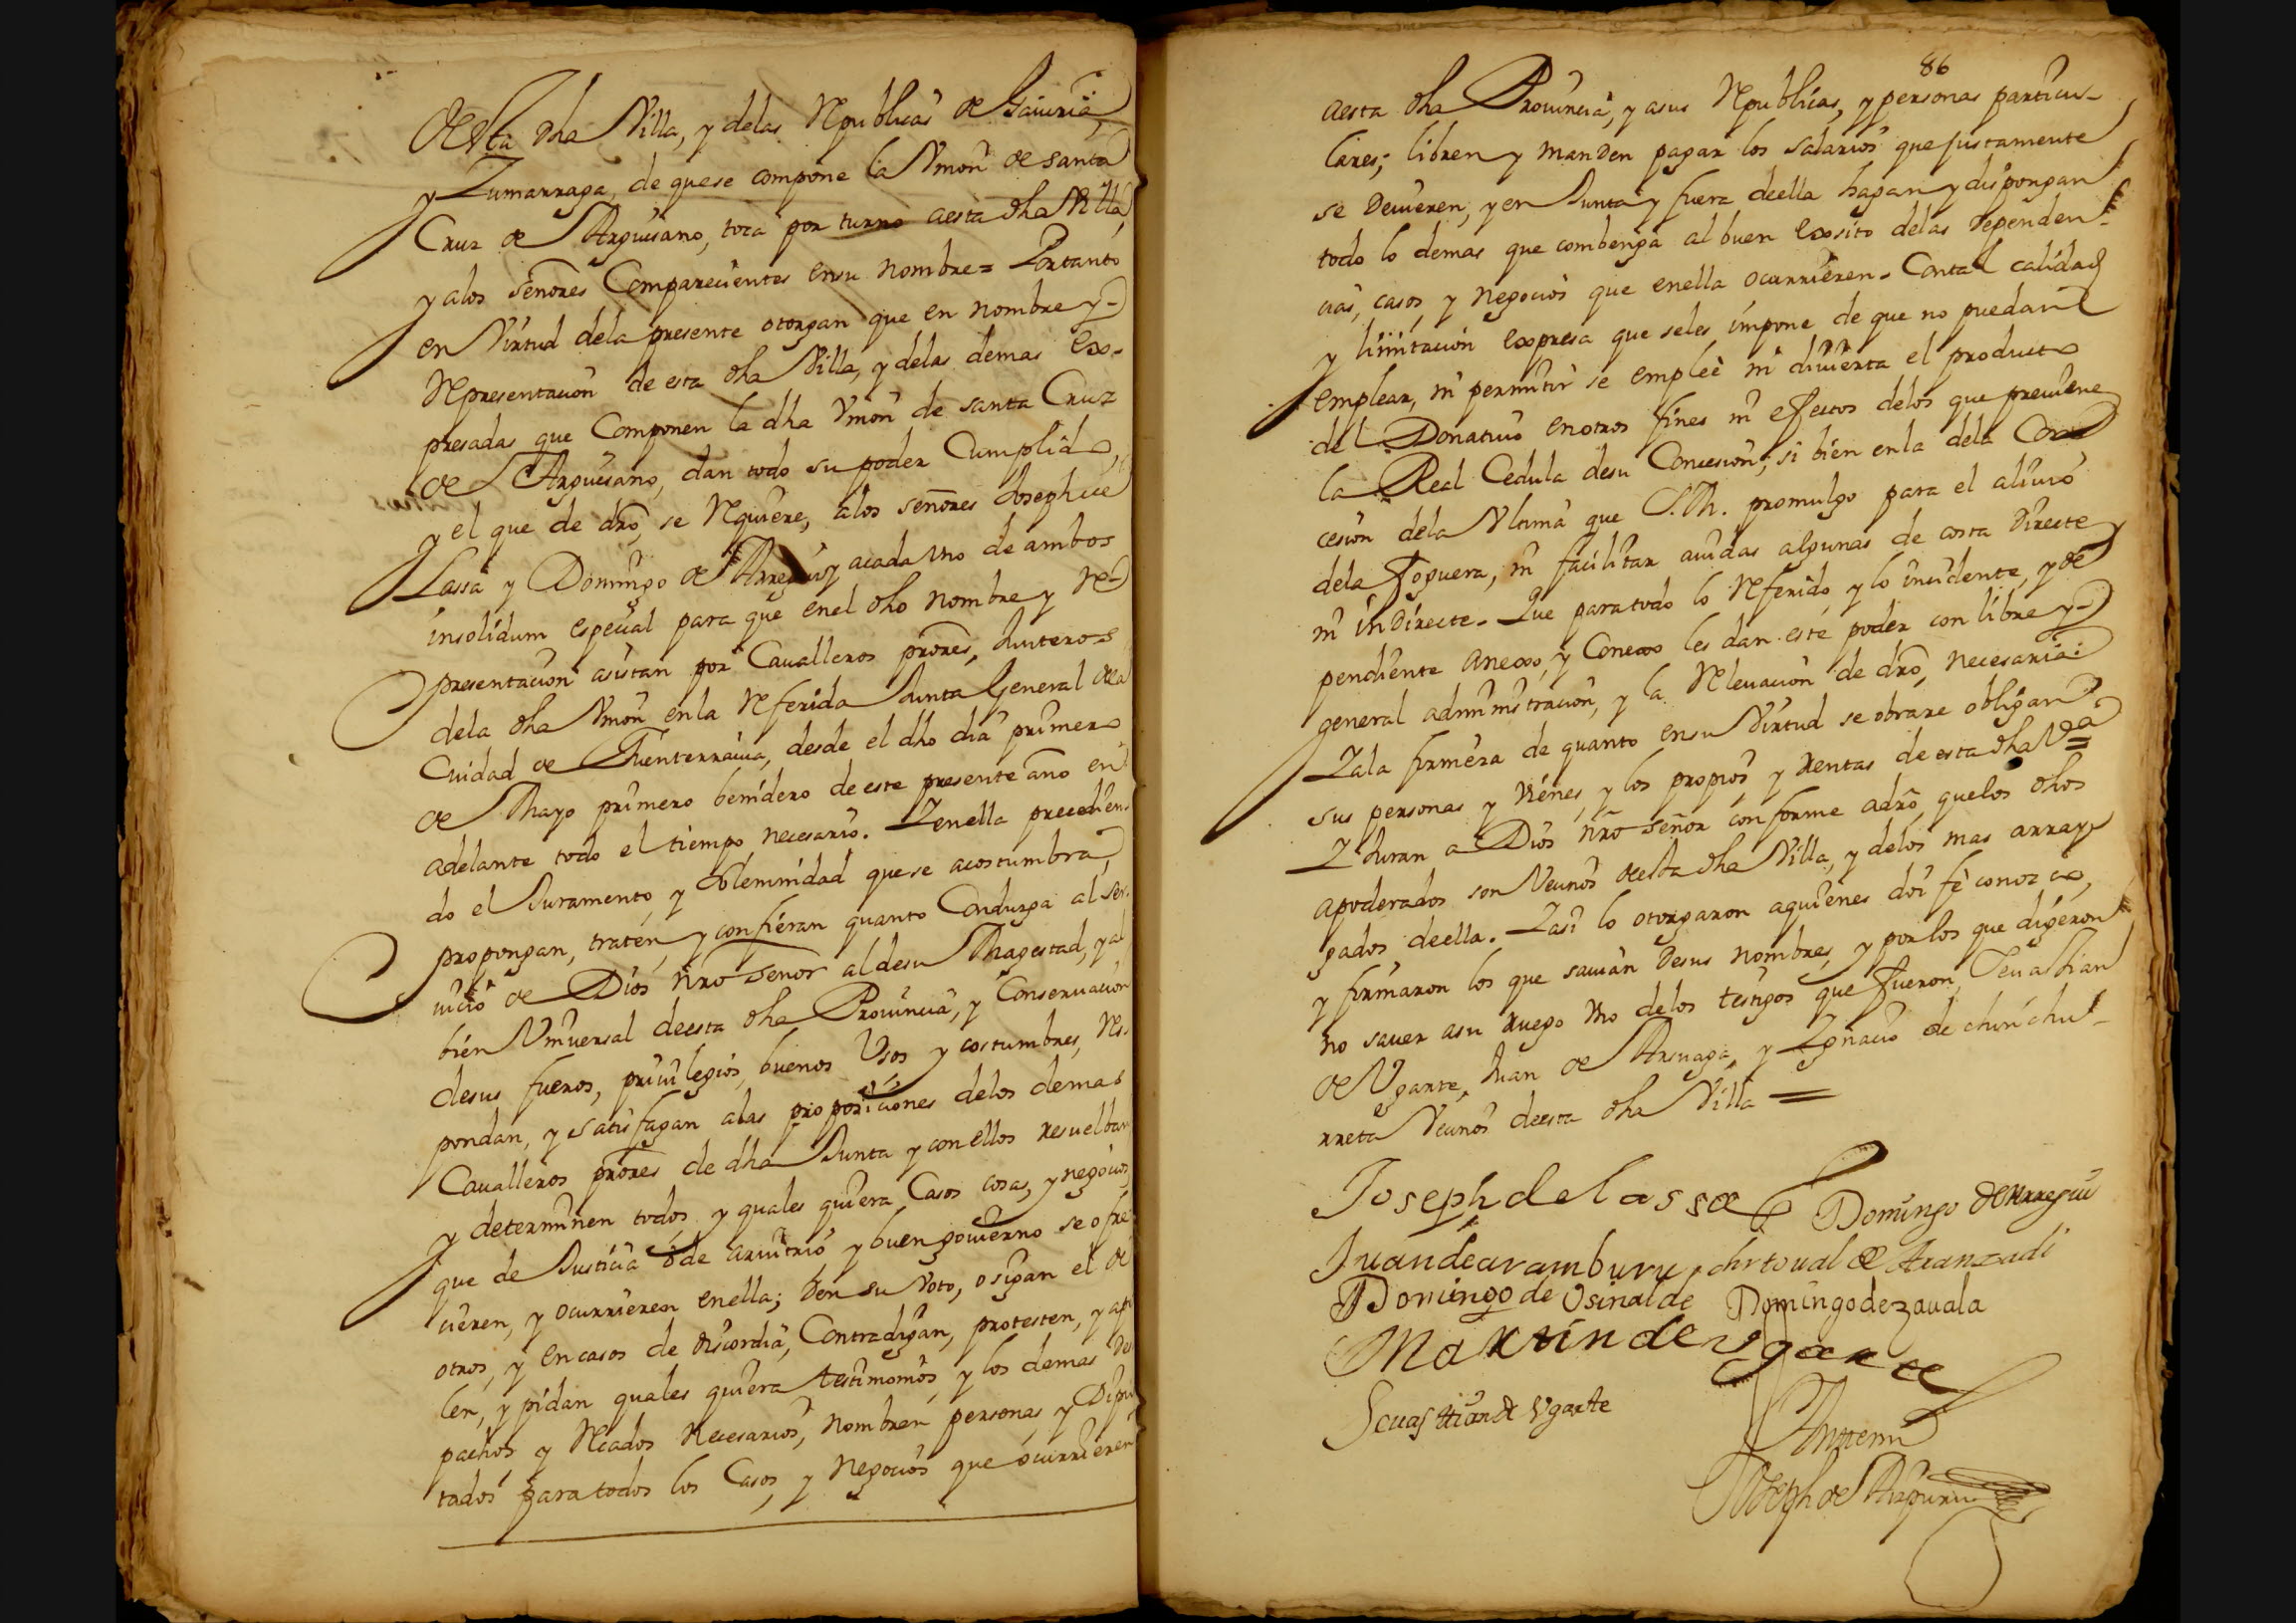 de esta dha Villa, y delas Republicas de Gaviria,
y Zumarraga, de quese compone la Vnion de Santa
Cruz de Arguisano, toca por turno aesta dha Villa,
y alos señores Comparecientes ensu nombre = Portanto
en Virtud dela presente otorgan que en nombre y
Representacion de esta dha Villa, y delas demas Ex-
presadas que Componen la dha Vnion de santa Cruz
de Arguisano, dan todo su poder Cumplido,
y el que de dro se Requiere, alos señores Joseph de
Lassa y Domingo de Arregui y acada vno de ambos
insolidum especial para que enel dho nombre y Re-
presentacion asistan por Caualleros prores, Junteros
dela dha Vnion enla Referida Junta General dela
Ciudad de Fuenterrauia, desde el dho dia primero
de Mayo primero benidero de este presente año en
adelante todo el tiempo necesario. Yenella precedien-
do el Juramento, y Solemnidad quese acostumbra,
propongan, traten, y confieran quanto Conduzga al ser-
uicio de Dios nro señor al desu Magestad, y al
bien Vniuersal deesta dha Prouincia, y Conseruacion
desus fueros, priuilegios, buenos Vsos y costumbres, Res-
pondan, y satisfagan alas proposiciones delos demas
Caualleros prores de dha Junta y con ellos resuelban
y determinen todos y quales quiera Casos cosas, y negocios,
que de Justicia o de aruitrio y buen gouierno se ofre-
cieren, y ocurrieren enella; den su Voto, o sigan el de
otros, y en casos de discordia, Contradigan, protesten, y ape-
len, y pidan quales quiera testimonios y los demas des-
pachos y Recados Necesarios, nombren personas y Dipu-
tados para todos los Casos, y Negocios que ocurrieren
86
aesta dha Prouincia, y asus Republicas, y personas particu-
lares; libren y manden pagar los salarios que justamente
se deuieren, y en Junta y fuera deella hagan y dispongan
todo lo demas que combenga al buen exsito delas dependen-
cias, casos, y negocios que enella ocurrieren. Contal calidad
y limitacion expresa que seles impone de que no puedan
emplear, ni permitir se empleè ni diuierta el producto
del Donatiuo enotros fines ni efectos delos que preuiene
la Real Cedula desu Concesion; si bien enla dela Con-
cesion dela Vltima que S.M. promulgo para el aliuio
dela foguera, ni facilitar auidas algunas de costa directe
ni indirecte. Que para todo lo Referido, y lo incidente, y de
pendiente anexo, y Conexo les dan este poder con libre y
general administracion, y la Releuacion de dro, necesaria:
Yala firmeza de quanto ensu Virtud se obrare obligan
sus personas y vienes, y los propios, y rentas de esta dha Va =
Y Juran a Dios nro señor conforme adro, quelos dhos
apoderados son Vecinos deesta dha Villa, y delos mas array-
gados deella. Yasi lo otorgaron aquienes doi fè conozco,
y firmaron los que sauian desus nombres, y por los que digeron
no sauer asu ruego vno delos testigos que fueron, Seuastian
de Vgarte, Juan de Arsuaga, y Ygnacio de churichu-
rreta Vecinos deesta dha Villa =
Joseph de lassa Domingo de Arregui
Juan de aramburu christoual de Aranzadi
Domingo de Vsinalde Domingo de zauala
Martin de Vgarte
Seuasttian de Vgarte
Antemi
Joseph de